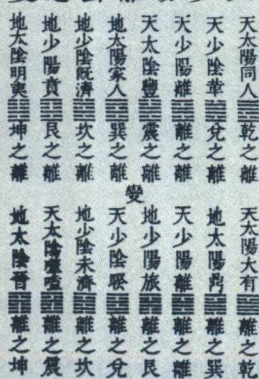 天太陽同人乾之離
天少陰革兌之離
天少陽離離之離
天太陰豐震之離
地太陽家人巽之離
地少陰既濟坎之離
地少陽賁艮之離
地太陰明夷坤之離
變
天太陽大有離之乾
地太陽鼎離之巽
天少陽離離之離
地少陽旅離之艮
天少陰睽離之兌
地少陰未濟離之坎
天太陰噬嗑離之震
地太陰晉離之坤